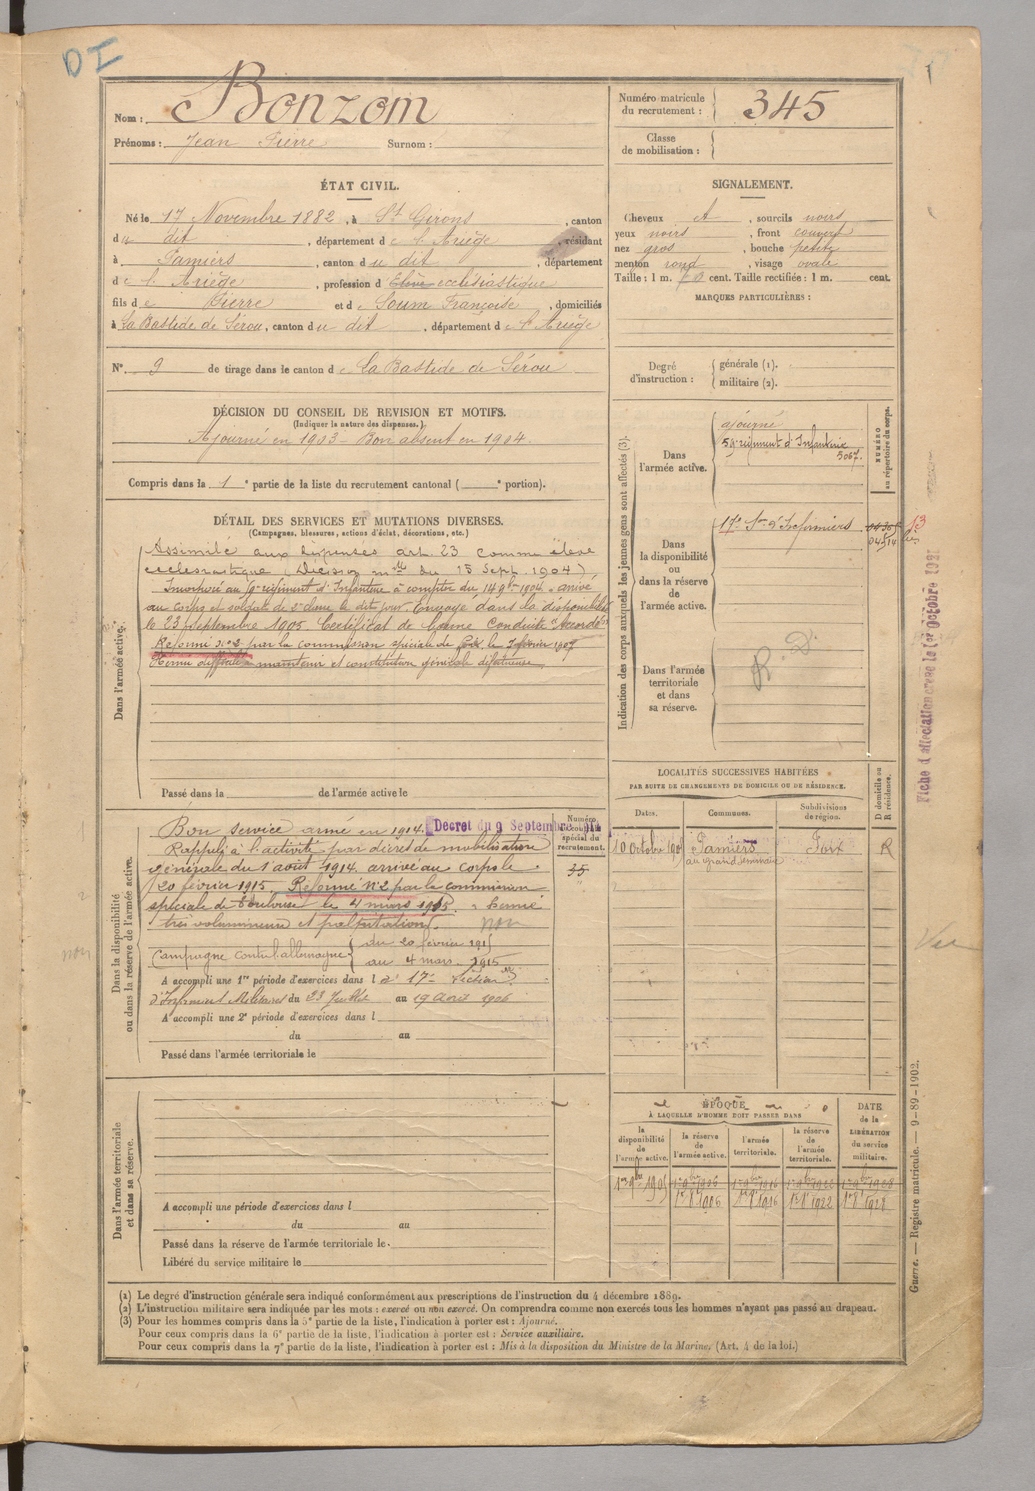 DI
Nom : Bonzom
Prénoms : Jean Pierre Surnom :
Numéro matricule du recrutement : 345
Classe de mobilisation :
ÉTAT CIVIL.
Né le 17 Novembre 1882, à St Girons, canton
du dit, département de l'Ariège, résidant
à Pamiers, canton du dit, département
de l'Ariège, profession d'Elève ecclésiastique
fils de Pierre et de Soum Françoise, domiciliés
à La Bastide de Sérou, canton du dit, département de l'Ariège
N° 9 de tirage dans le canton de La Bastide de Sérou
SIGNALEMENT.
Cheveux, sourcils noirs
yeux noirs, front couvert
nez gros, bouche petite
menton rond, visage ovale
Taille : 1 m. cent. Taille rectifiée : 1 m. cent.
MARQUES PARTICULIÈRES :
Degré d'instruction : générale (1).
militaire (2).
DÉCISION DU CONSEIL DE REVISION ET MOTIFS.
(Indiquer la nature des dispenses.)
Ajourné en 1903 - Bon absent en 1904.
Compris dans la 1e partie de la liste du recrutement cantonal ( e portion).
DÉTAIL DES SERVICES ET MUTATIONS DIVERSES.
(Campagnes, blessures, actions d'éclat, décorations, etc.)
Dans l'armée active.
Assimilé aux dispensés art. 23 comme élève
ecclésiastique (Décision mlle du 15 Sept. 1904)
Incorporé au régiment d'Infanterie à compter du 14 9bre 1904. arrivé
au corps et soldat de 2e classe le dit jour. Envoyé dans la disponibilité
le 23 septembre 1905. Certificat de Bonne Conduite "Accordé"
Réformé n°2 par la commission spéciale de Foix le
et constitution générale défectueuse
Passé dans la de l'armée active le
Indication des corps auxquels les jeunes gens sont affectés (3).
NUMÉRO au répertoire du corps.
Dans l'armée active.
ajourné
59e régiment d'Infanterie
5067.
Dans la disponibilité ou dans la réserve de l'armée active.
17e Son d'Infirmiers
13
Dans l'armée territoriale et dans sa réserve.
R. D.
Fiche d'affectation créée le 1er Octobre
LOCALITÉS SUCCESSIVES HABITÉES
PAR SUITE DE CHANGEMENTS DE DOMICILE OU DE RÉSIDENCE.
Dates. Communes. Subdivisions de région. D domicile ou R résidence.
10 Octobre Pamiers Foix R
au grand séminaire
Dans la disponibilité ou dans la réserve de l'armée active.
Numéro au contrôle spécial du recrutement.
35
Bon service armé en 1914. Décret du 9 Septembre 1914
Rappelé à l'activité par décret de mobilisation
générale du 1 août 1914. arrivé au corps le
20 février 1915. Réformé n°2 par la commission
spéciale de Toulouse le 4 mars 1915. "Hernie
très volumineuse et palpitations".
non
Campagne contre l'allemagne du 20 février 1915
au 4 mars 1915
A accompli une 1re période d'exercices dans la 17e Section
d'Infirmiers Militaires du 23 au 19 Août 1906
A accompli une 2e période d'exercices dans l
du au
Passé dans l'armée territoriale le
non
Vu
Dans l'armée territoriale et dans sa réserve.
A accompli une période d'exercices dans l
du au
Passé dans la réserve de l'armée territoriale le
Libéré du service militaire le
ÉPOQUE
À LAQUELLE L'HOMME DOIT PASSER DANS
la disponibilité de l'armée active.
la réserve de l'armée active.
l'armée territoriale.
la réserve de l'armée territoriale.
DATE de la LIBÉRATION du service militaire.
1er 9bre 1905 1er 9bre 1906 1er 9bre 1916 1er 9bre 1922 1er 9bre 1928
1er 8bre 1906 1er 8bre 1916 1er 8bre 1922 1er 8bre 1928
Guerre. — Registre matricule. — 9-89-1902.
(1) Le degré d'instruction générale sera indiqué conformément aux prescriptions de l'instruction du 4 décembre 1889.
(2) L'instruction militaire sera indiquée par les mots : exercé ou non exercé. On comprendra comme non exercés tous les hommes n'ayant pas passé au drapeau.
(3) Pour les hommes compris dans la 5e partie de la liste, l'indication à porter est : Ajourné.
Pour ceux compris dans la 6e partie de la liste, l'indication à porter est : Service auxiliaire.
Pour ceux compris dans la 7e partie de la liste, l'indication à porter est : Mis à la disposition du Ministre de la Marine. (Art. 4 de la loi.)